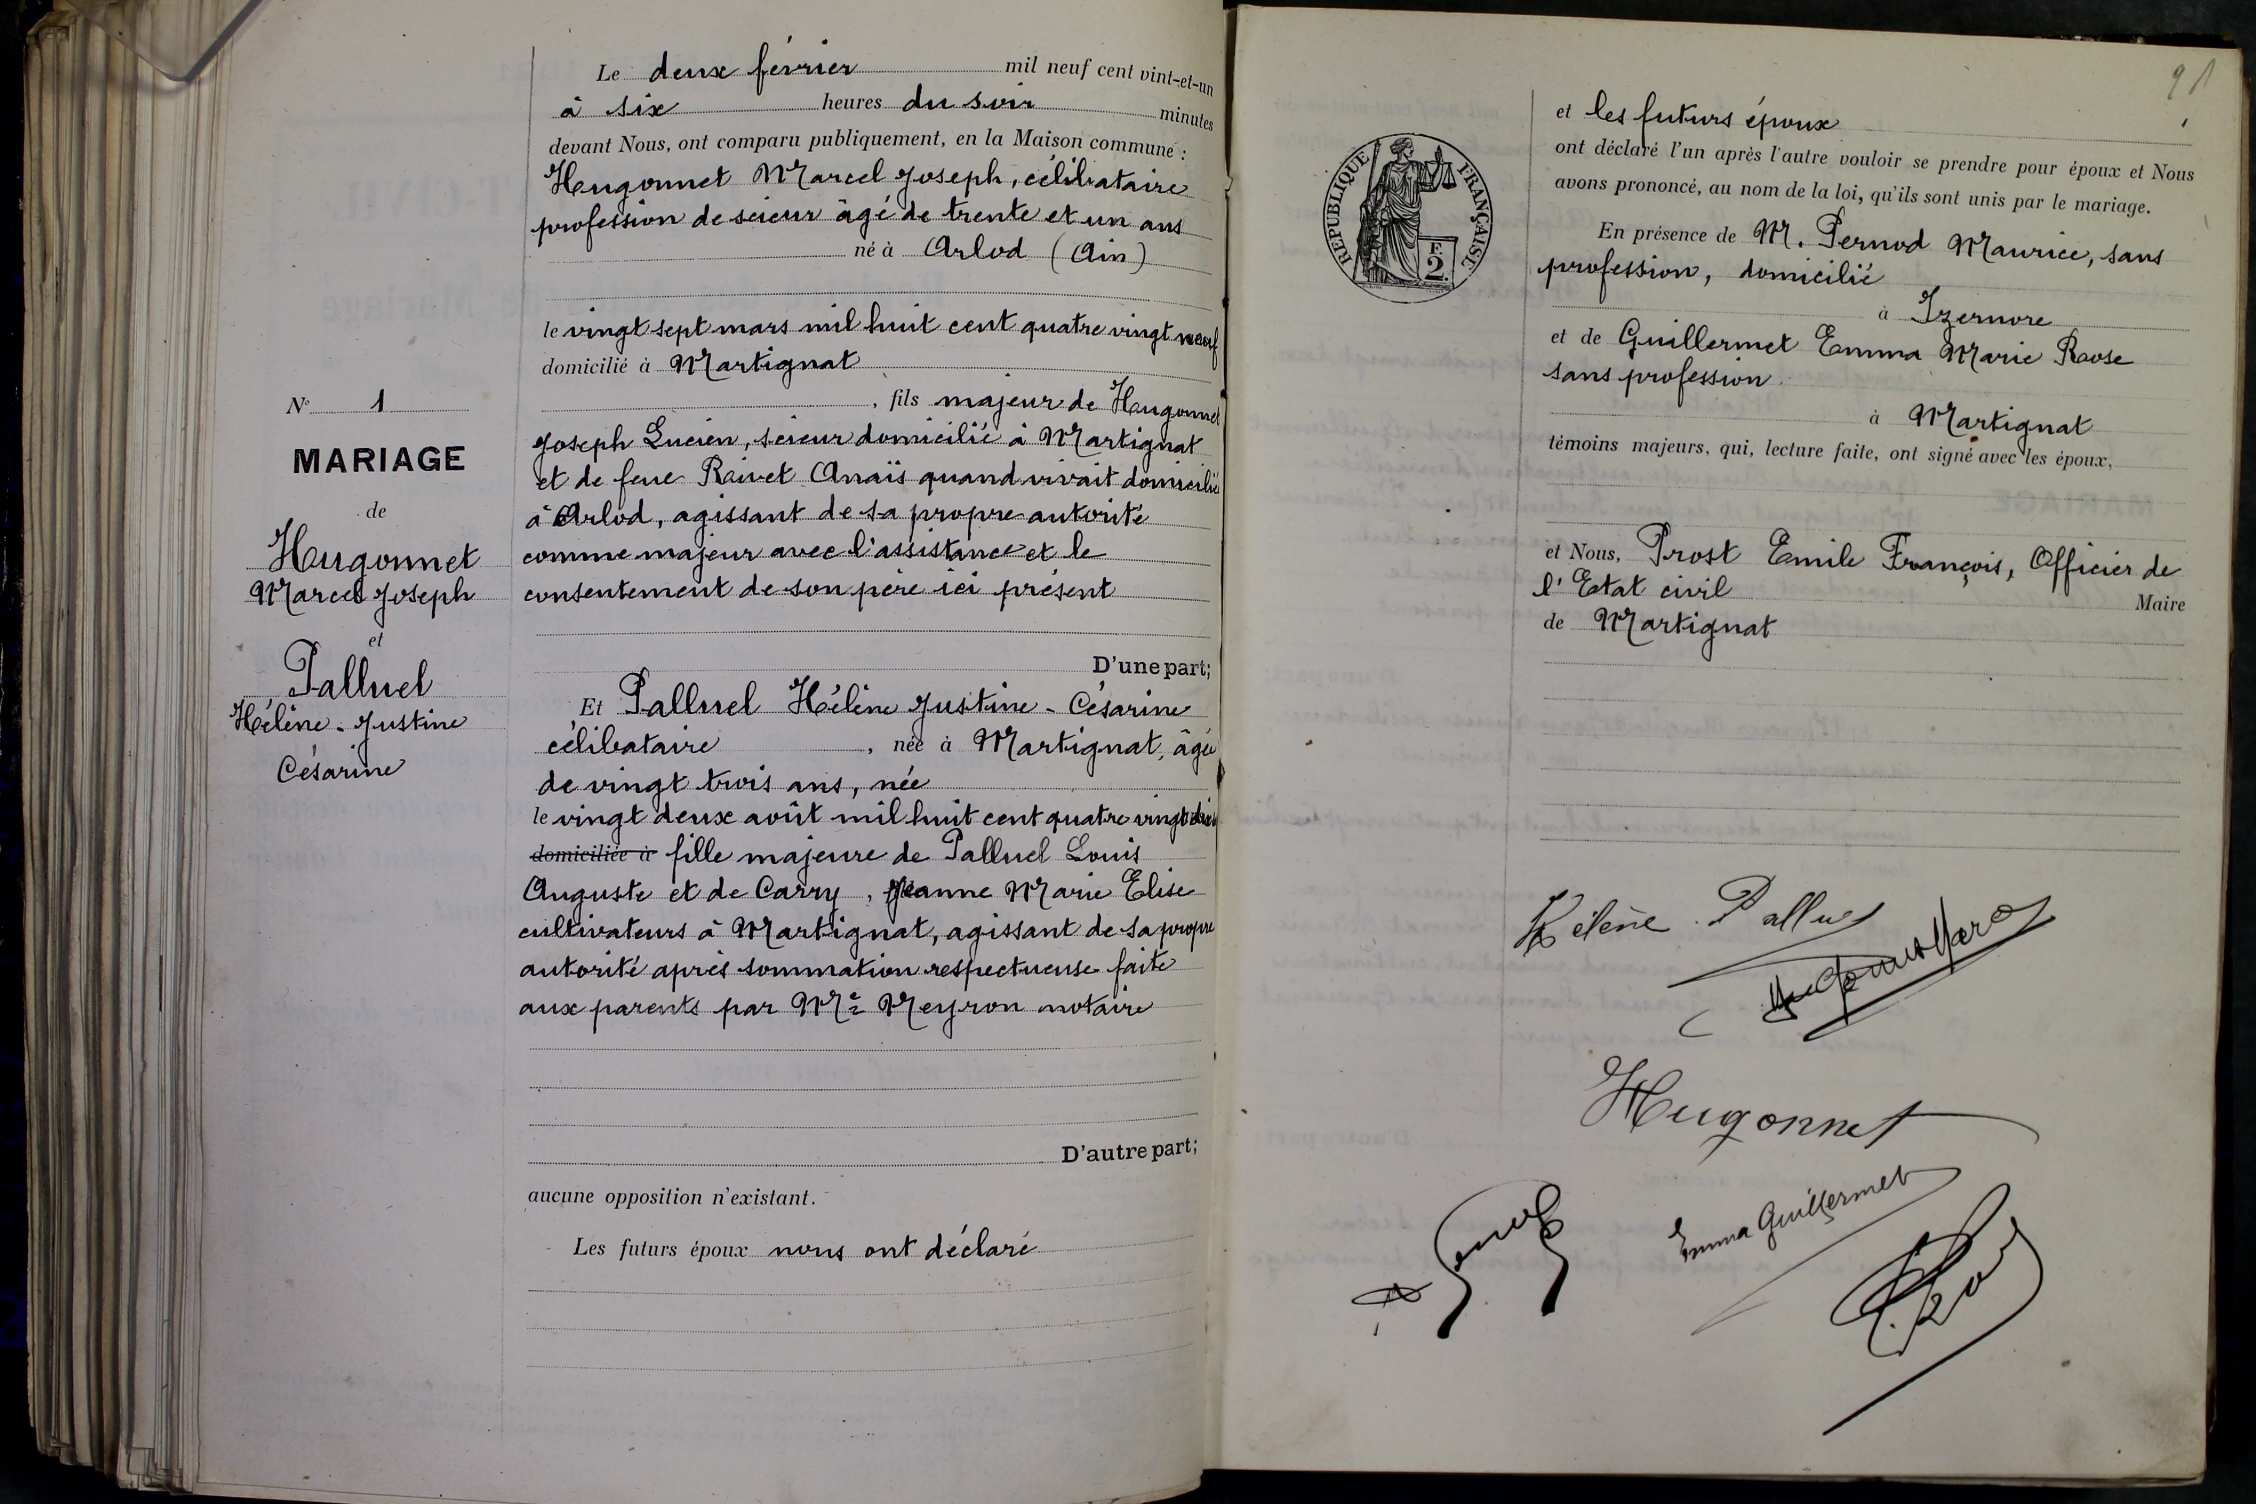 Le deux février mil neuf cent vint-et-un
à six heures du soir minutes
devant Nous, ont comparu publiquement, en la Maison commune :
Hugonnet Marcel Joseph, célibataire
profession de scieur âgé de trente et un ans
né à Arlod (Ain)
le vingt sept mars mil huit cent quatre vingt neuf
domicilié à Martignat
, fils majeur de Hugonnet
Joseph Lucien, scieur domicilié à Martignat
et de feue Raivet Anaïs quand vivait domicilié
à Arlod, agissant de sa propre autorité
comme majeur avec l'assistance et le
consentement de son père ici présent
D'une part;
Et Palluel Hélène Justine - Césarine
célibataire , née à Martignat, âgée
de vingt trois ans, née
le vingt deux août mil huit cent quatre vingt
domiciliée à fille majeure de Palluel Louis
Auguste et de Carry, Jeanne Marie Elise
cultivateurs à Martignat, agissant de sa propre
autorité après sommation respectueuse faite
aux parents par Me Meyron notaire
D'autre part;
aucune opposition n'existant.
Les futurs époux nous ont déclaré
N° 1
MARIAGE
de
Hugonnet
Marcel Joseph
et
Palluel
Hélène - Justine
Césarine
91
RÉPUBLIQUE FRANÇAISE
F.
2
et les futurs époux
ont déclaré l'un après l'autre vouloir se prendre pour époux et Nous
avons prononcé, au nom de la loi, qu'ils sont unis par le mariage.
En présence de M. Pernod Maurice, sans
profession, domicilié
à Izernore
et de Guillermet Emma Marie Rose
sans profession
à Martignat
témoins majeurs, qui, lecture faite, ont signé avec les époux,
et Nous, Prost Emile François, Officier de
l'Etat civil Maire
de Martignat
Hélène Palluel
Hugonnet Marcel
Hugonnet
Emma Guillermet